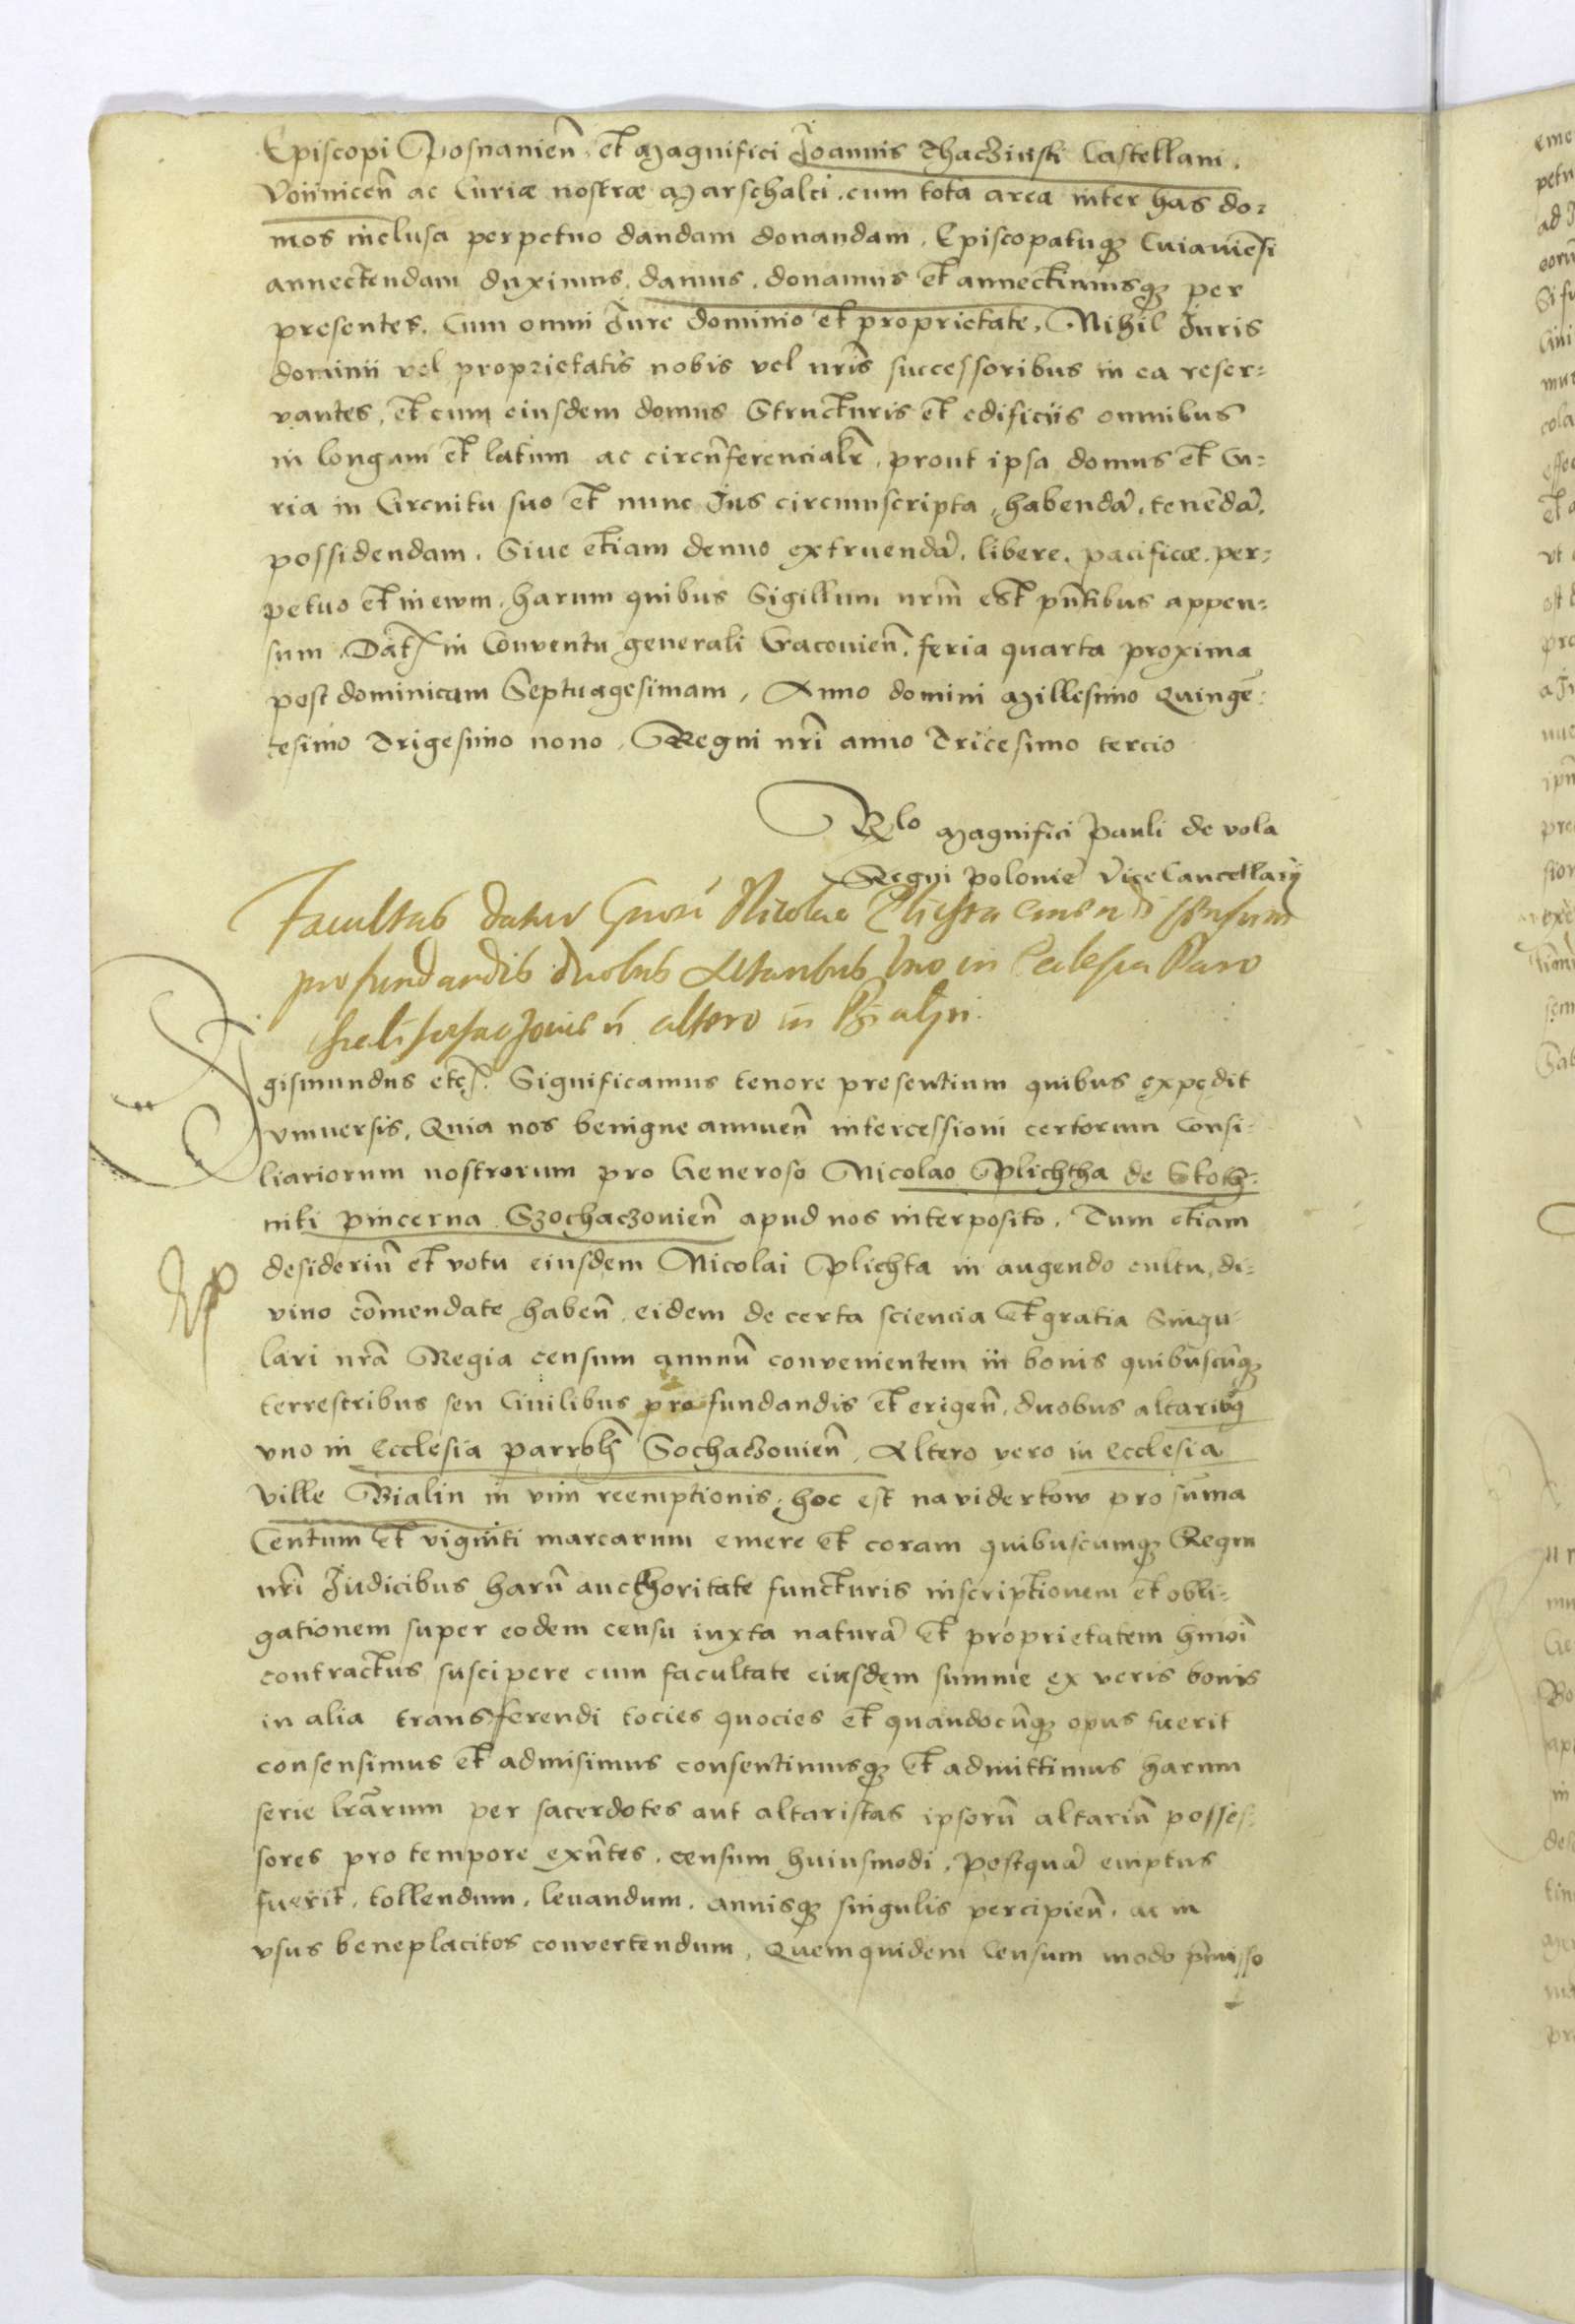 Episcopi Posnanien̄ et Magnifici Joannis Thaczinski Castellani.
Voinnicen̄ ac Curiæ nostræ Marschalci. cum tota area inter has do=
mos inclusa perpetuo dandam donandam, Episcopatuq̨ Cuiauiēsi
annectendam duximus, damus, donamus et annectimusq̨ per
presentes. Cum omni Jure dominio et proprietate, Nihil Juris
dominii vel proprietatis nobis vel nr̄is successoribus in ea reser=
vantes, et cum eiusdem domus Structuris et edificiis omnibus
in longum et latum ac circūferencialr̄, prout ipsa domus et Cu=
ria in Circuitu suo et nunc Jus circumscripta, habendā, tenēdā,
possidendam. Siue etiam denuo extruendā, libere, pacificæ, per=
petuo et in ewm. harum quibus Sigillum nrm̄ est pn̄tibus appen=
sum. Dat̄ in Conventu generali Cracouien̄, feria quarta proxima
post dominicam Septuagesimam, Anno domini Millesimo Quingē=
tesimo Trigesimo nono, Regni nr̄i anno Tricesimo tercio
Rlo Magnifici Pauli de vola
Regni Polonie Vicecancellarij
Facultas datur Gnosi Nicolao Plichta emendi censum
pro fundandis duobus Altaribus uno in Eclesia Paro
chiali sochaczouien̄ altero in Bialyn.
Sigismundus etc̄. Significamus tenore presentium quibus expedit
vniuersis, Quia nos benigne annuen̄ intercessioni certorum Consi=
liariorum nostrorum pro Generoso Nicolao Plichtha de
niki pincerna Szochaczouien̄ apud nos interposito. Tum etiam
desideriū et votu eiusdem Nicolai Plichta in augendo cultu, di=
vino cōmendate haben̄, eidem de certa sciencia et gratia Singu=
lari nrā Regia censum annuū convenientem in bonis quibuscūq̨
terrestribus seu Ciuilibus pro fundandis et erigen̄, duobus altaribq̨
vno in Ecclesia parroh̄ Sochaczouien̄, Altero vero in Ecclesia
Ville Bialin in vim reemptionis, hoc est na viderkow pro sum̄a
Centum et viginti marcarum emere et coram quibuscumq̨ Regni
nr̄i Judicibus harū aucthoritate functuris inscriptionem et obli=
gationem super eodem censu iuxta naturā et proprietatem hmōi
contractus suscipere cum facultate eiusdem summe ex veris bonis
in alia transferendi tocies quocies et quandocūq̨ opus fuerit
consensimus et admisimus consentimusq̨ et admittimus harum
serie lrārum per sacerdotes aut altaristas ipsorū altariū posses=
sores pro tempore exn̄tes, censum huiusmodi, postquā emptus
fuerit, tollendum, levandum, annisq̨ singulis percipien̄, ac in
vsus beneplacitos convertendum, Quemquidem Censum modo pmisso